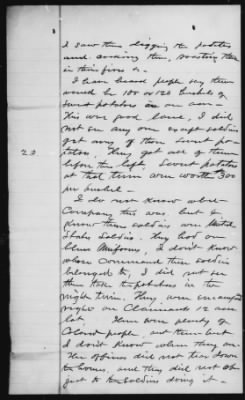 I saw them digging the potatoes
and cooking them, roasting them
in their fires &c.
I have heard people say there
would be 100 or 120 bushels of
sweet potatoes on an acre -
This was good land, I did
not see any one except soldiers
get any of these sweet po-
tatoes. They got all of them
before they left. Sweet potatoes
22
at that time were worth 3.00
per bushel -
I do not know what
Company this was, but I
know these soldiers were United
States Soldiers. They had on
blue Uniforms, I don't know
whose command these soldiers
belonged to, I did not see
them take the potatoes in the
night time. They were encamped
right on Claimants 12 acre
lot. There were plenty of
Colored people out there but
I don't know where they are.
The officers did not tear down
the houses, and they did not ob-
ject to the soldiers doing it -